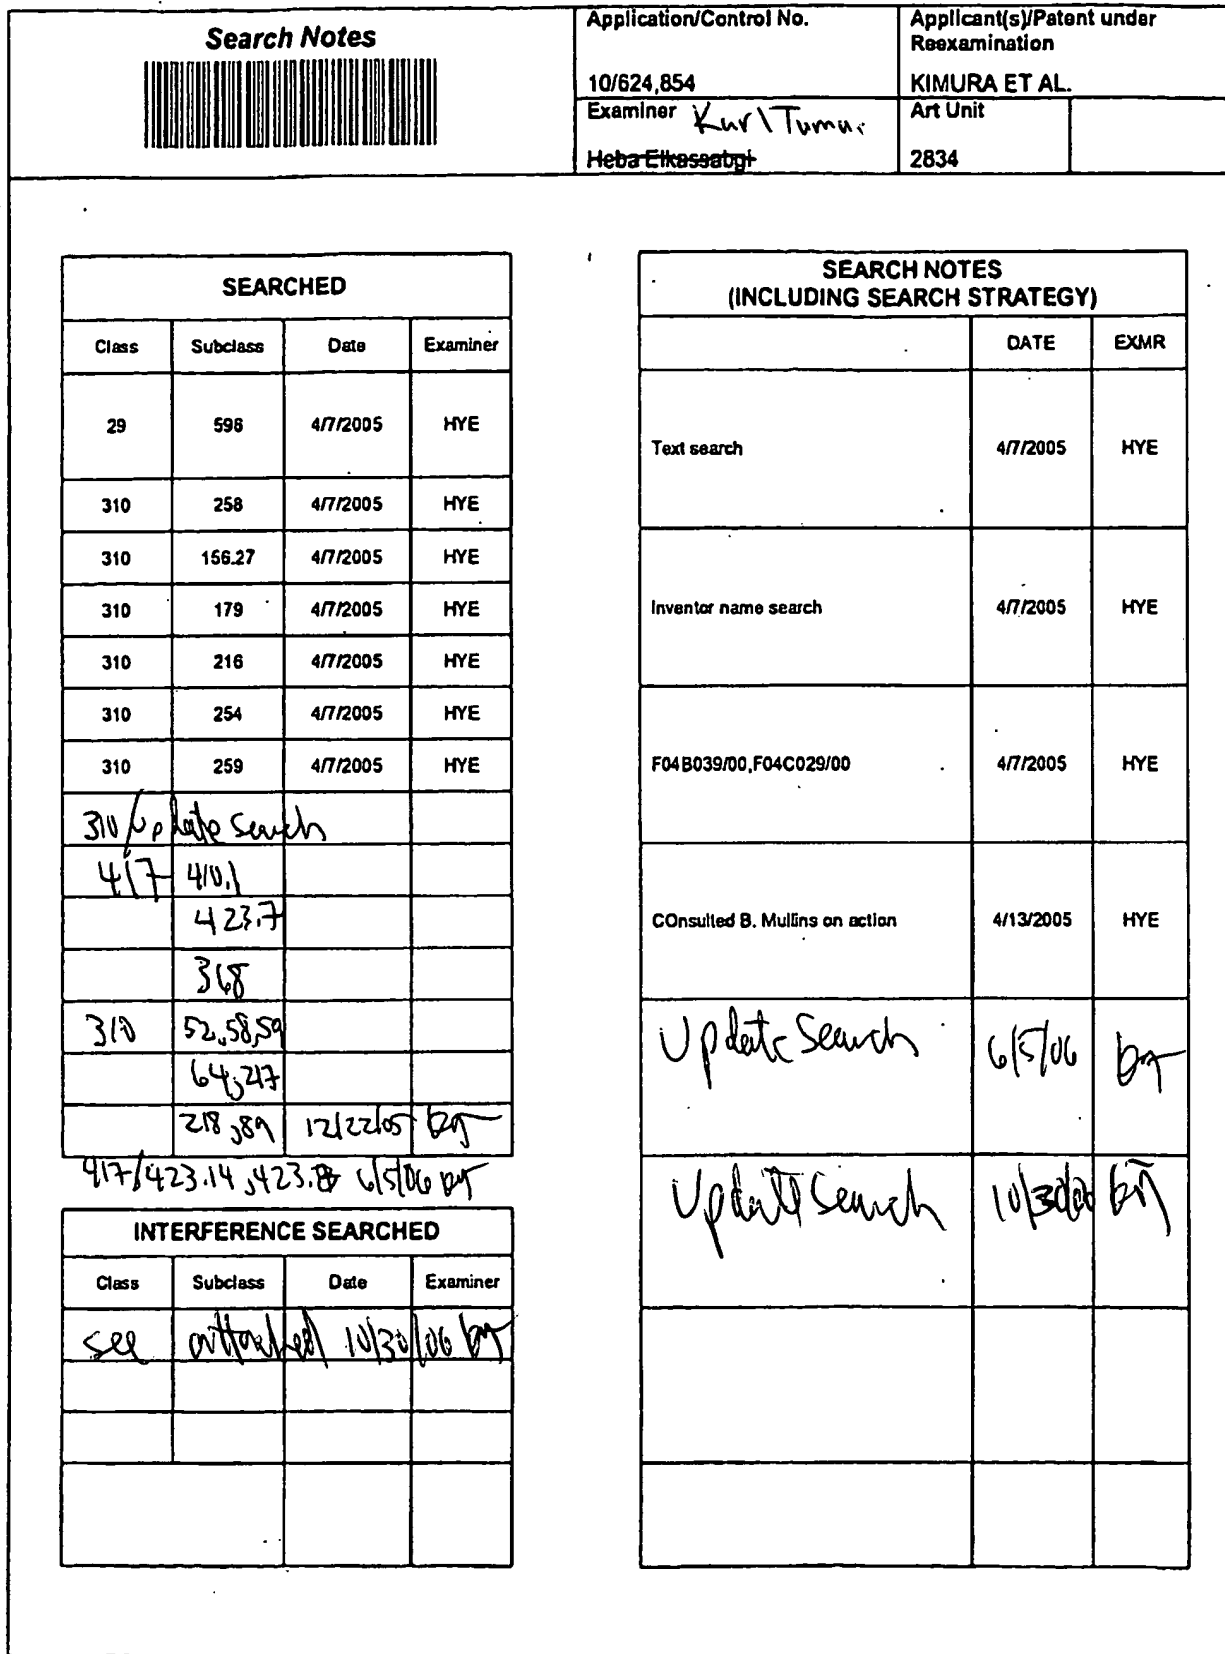 Search Notes
Application/Control No.
10/624,854
Applicant(s)/Patent under
Reexamination
KIMURA ET AL.
Examiner
Heba Elkassabgi
Art Unit
2834
SEARCHED
Class Subclass Date Examiner
29 596 4/7/2005 HYE
310 258 4/7/2005 HYE
310 156.27 4/7/2005 HYE
310 179 4/7/2005 HYE
310 216 4/7/2005 HYE
310 254 4/7/2005 HYE
310 259 4/7/2005 HYE
310/Update Search
417 410.1
423.7
368
310 52,58,59
64,217
218,89 12/22/05
417/423.14,423.8 6/5/06
INTERFERENCE SEARCHED
Class Subclass Date Examiner
see attached 10/30/06
SEARCH NOTES
(INCLUDING SEARCH STRATEGY)
DATE EXMR
Text search 4/7/2005 HYE
Inventor name search 4/7/2005 HYE
F04B039/00,F04C029/00 4/7/2005 HYE
COnsulted B. Mullins on action 4/13/2005 HYE
Update Search 6/5/06
Update Search 10/30/06